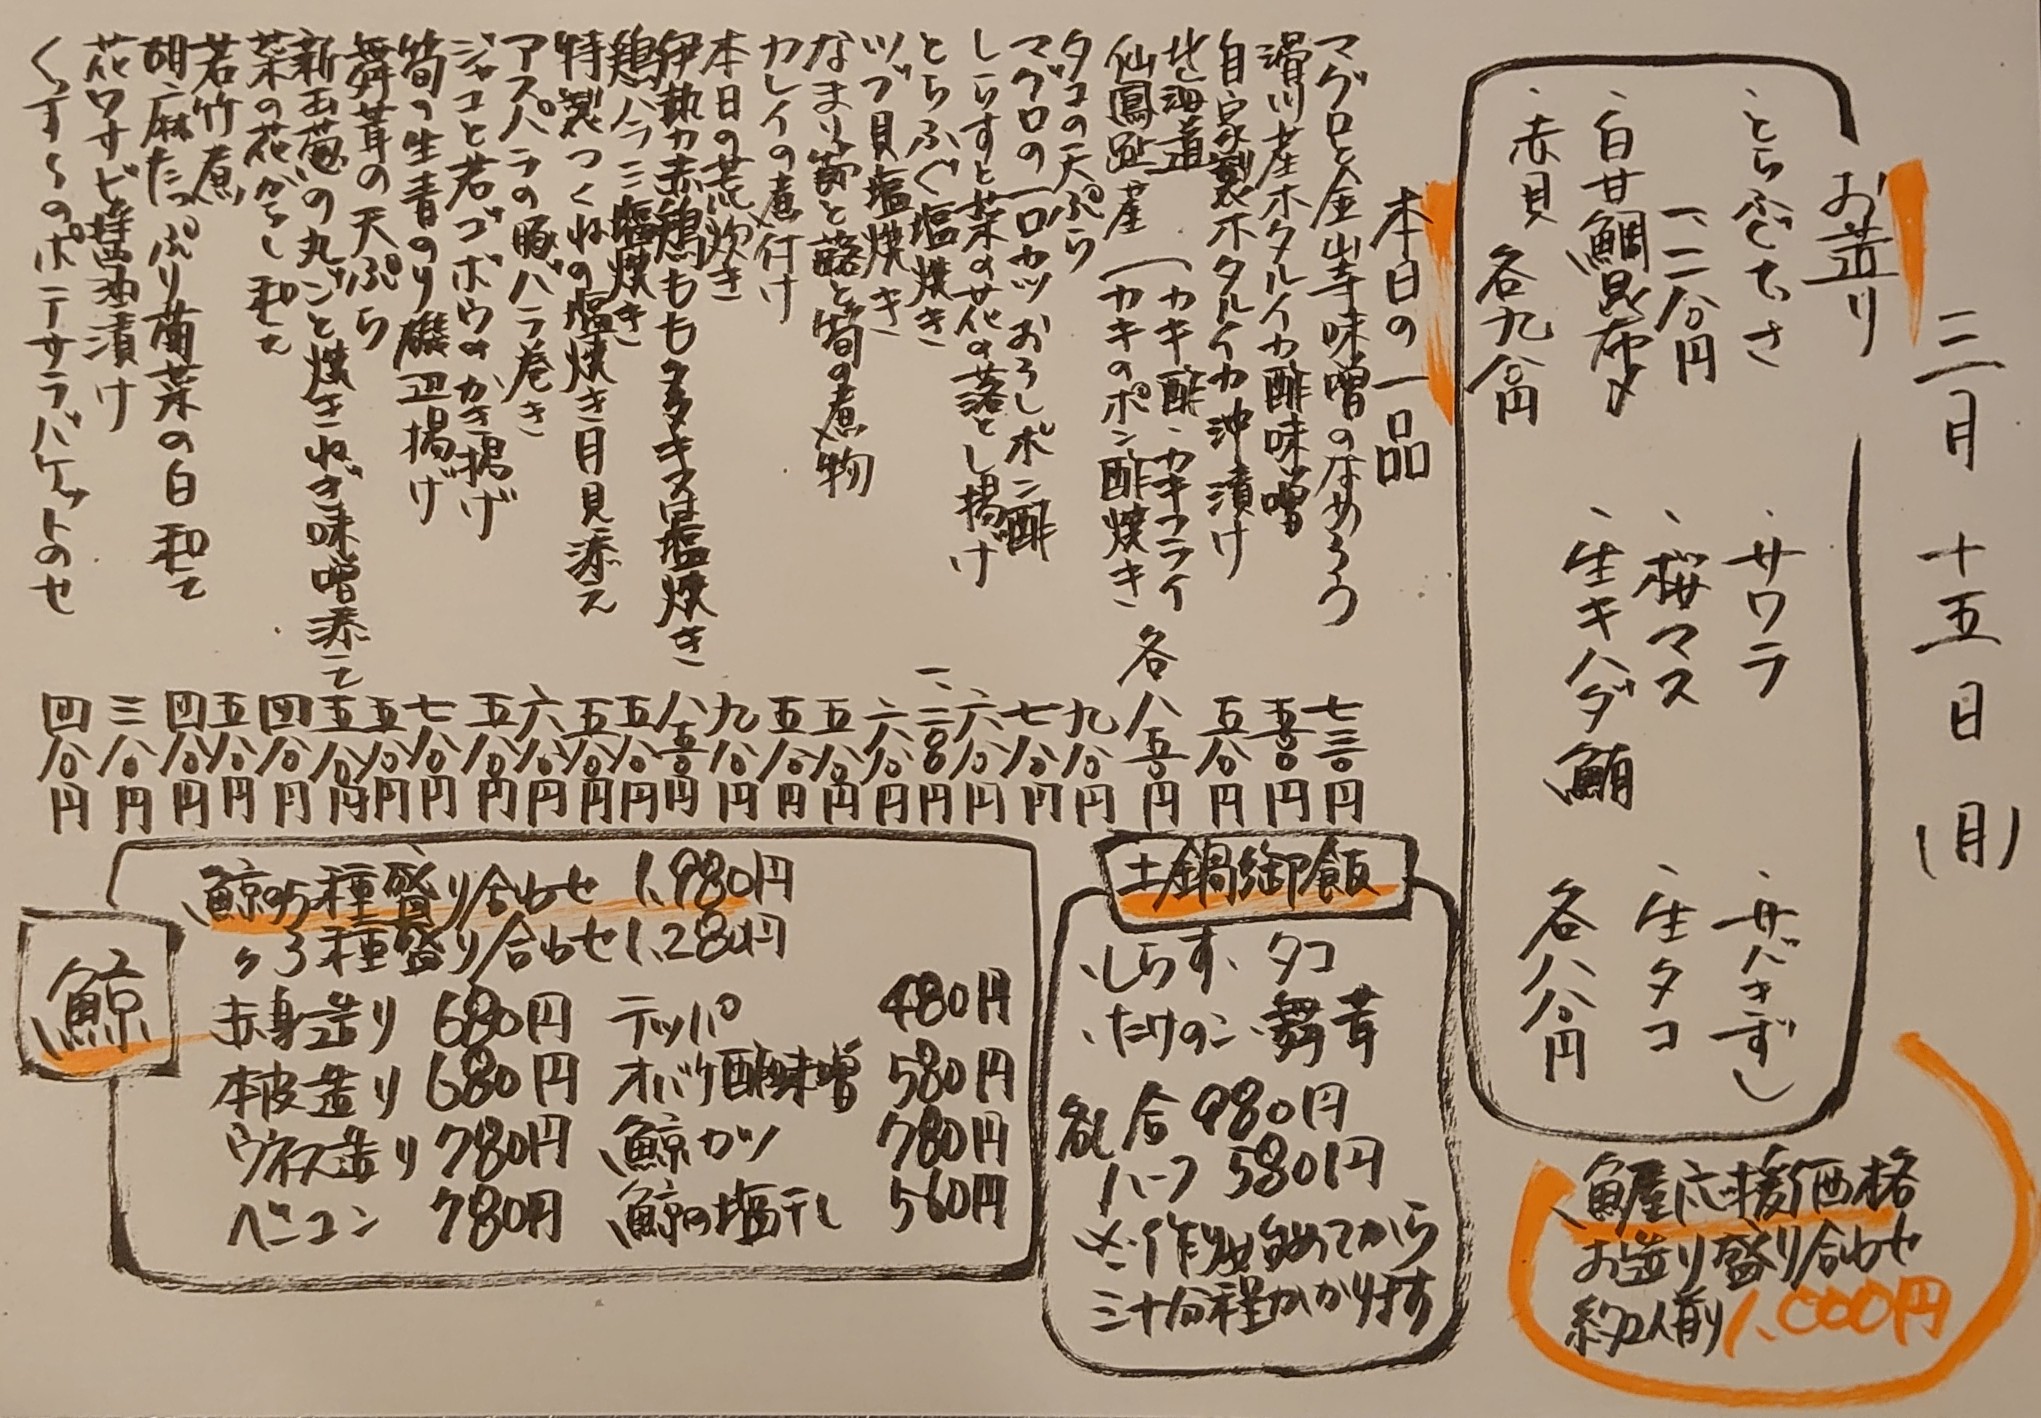 三月十五日(月)
お造り
・とらぶぐちさ
一、二〇〇円
・白甘鯛昆布〆
・赤貝 各九〇〇円
・サワラ
・桜マス
・生キハダ鮪
・サバきずし
・生タコ
各八〇〇円
魚屋応援価格
お造り盛り合わせ
約2人前 1,000円
本日の一品
マグロと金山寺味噌のなめろう 七三〇円
滑川産ホタルイカ酢味噌 五五〇円
自家製ホタルイカ沖漬け 五〇〇円
北海道仙鳳趾産(カキ酢・カキフライ
(カキのポン酢焼き 各八五〇円
タコの天ぷら 九〇〇円
マグロの一口カツおろしポン酢 七〇〇円
しらすと菜の花の落とし揚げ 六〇〇円
とらふぐ塩焼き 一、二〇〇円
ツブ貝塩焼き 六〇〇円
なまり節と蕗と筍の煮物 五〇〇円
カレイの煮付け 五〇〇円
本日の荒炊き 九〇〇円
伊勢赤鶏もも タタキ又は塩焼き 八五〇円
鶏ハラミ塩焼き 五〇〇円
特製つくねの塩焼き月見添え 五五〇円
アスパラの豚バラ巻き 六〇〇円
ジャコと若ゴボウのかき揚げ 五〇〇円
筍の生青のり磯辺揚げ 七〇〇円
舞茸の天ぷら 五〇〇円
新玉葱の丸ごと焼きねぎ味噌添えて 五〇〇円
菜の花がらし和え 四〇〇円
若竹煮 五〇〇円
胡麻たっぷり菊菜の白和え 四〇〇円
花ワサビ醤油漬け 三〇〇円
くんすものポテサラバケットのせ 四〇〇円
土鍋御飯
・しらす・タコ
・たけのこ・舞茸
各一合 980円
ハーフ 580円
※作り始めてから
三十分程かかります
鯨
鯨の5種盛り合わせ 1,980円
〃3種盛り合わせ 1,280円
赤身造り 680円
本皮造り 680円
ウネス造り 780円
ベーコン 780円
テッパ 480円
オバケ酢味噌 580円
鯨カツ 780円
鯨の塩干し 560円